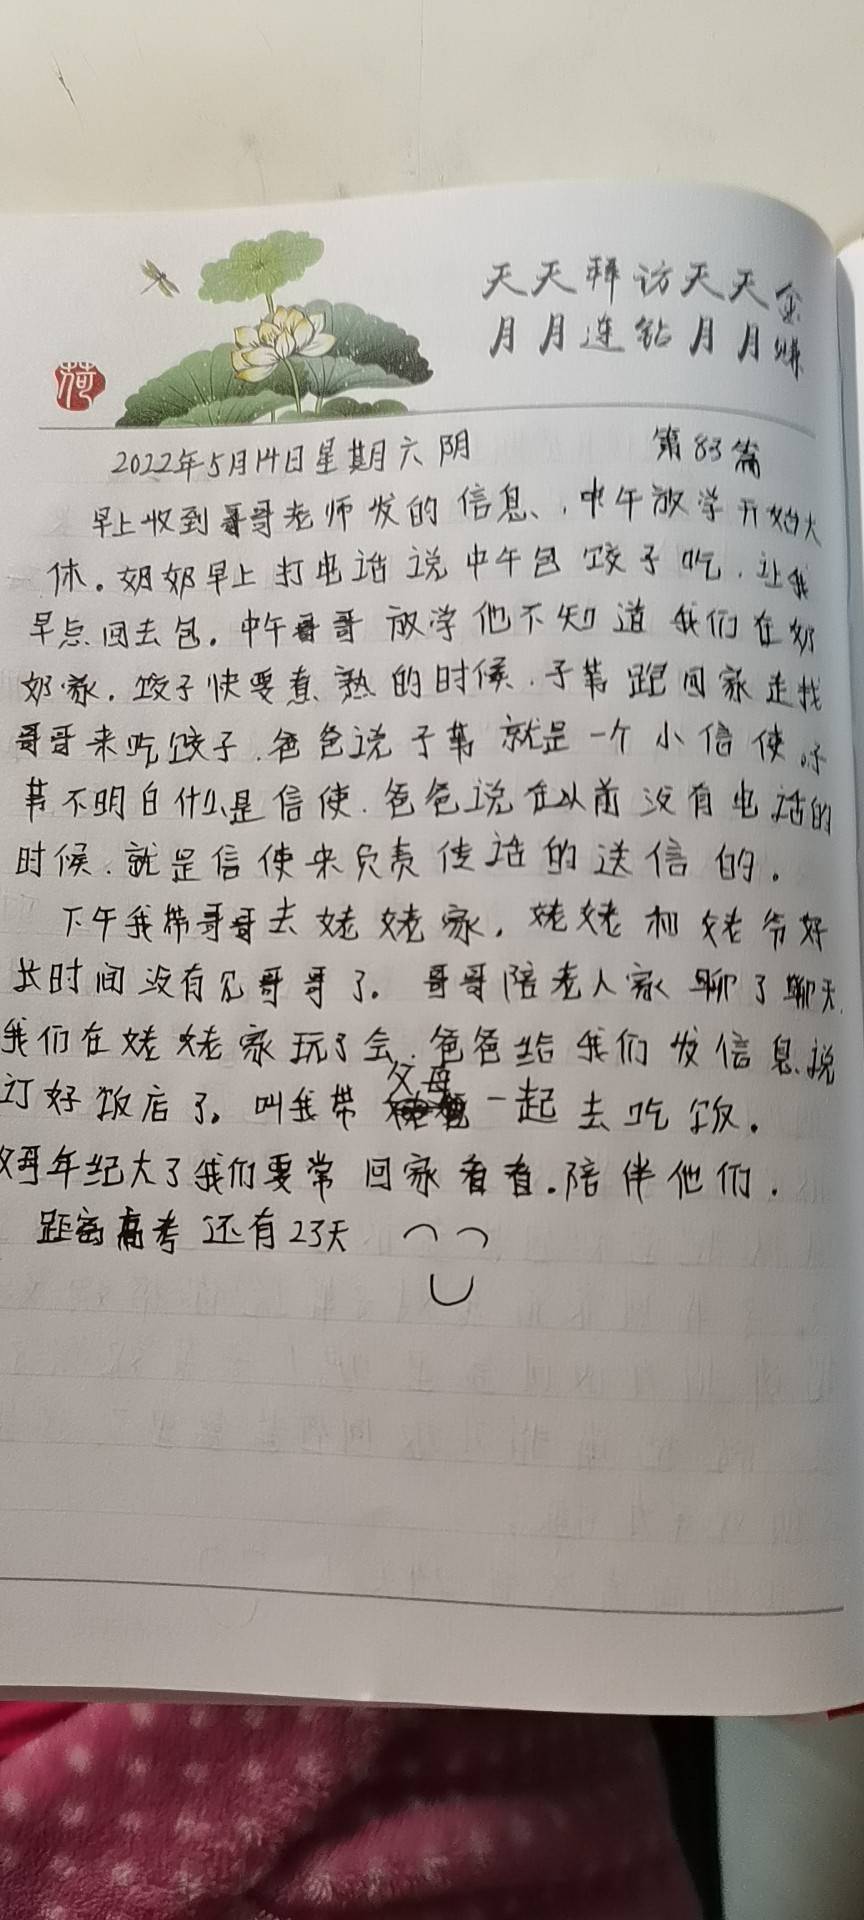 天天拜访天天金
月月连钻月月赚
荷
2022年5月14日星期六 阴 第83篇
早上收到哥哥老师发的信息、,中午放学开始大
休。奶奶早上打电话说中午包饺子吃,让我
早点回去包。中午哥哥放学他不知道我们在奶
奶家,饺子快要煮熟的时候,子苒跑回家去找
哥哥来吃饺子,爸爸说子苒就是一个小信使,子
苒不明白什么是信使,爸爸说在以前没有电话的
时候,就是信使来负责传话的送信的。
下午我带哥哥去姥姥家,姥姥和姥爷好
长时间没有见哥哥了。哥哥陪老人家聊了聊天,
我们在姥姥家玩了会,爸爸给我们发信息,说
订好饭店了。叫我带父母一起去吃饭。
父母年纪大了我们要常回家看看,陪伴他们,
距离高考还有23天